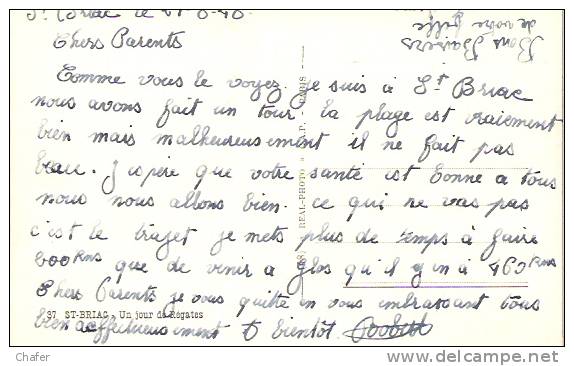 St Briac le
Chers Parents
Comme vous le voyez je suis à St Briac
nous avons fait un tour la plage est vraiement
bien mais malheureusement il ne fait pas
beau. J'espère que votre santé est bonne a tous
nous nous allons bien. ce qui ne vas pas
c'est le trajet je mets plus de temps à faire
200 Kms que de venir a Glos qu'il y en à 460 Kms
Chers Parents je vous quitte en vous embrassant tous
bien affectueusement à bientôt.
Bons Baisers
de votre fille
REAL-PHOTO
PARIS
37 ST-BRIAC - Un jour de Régates
Chafer
www.delcampe.net